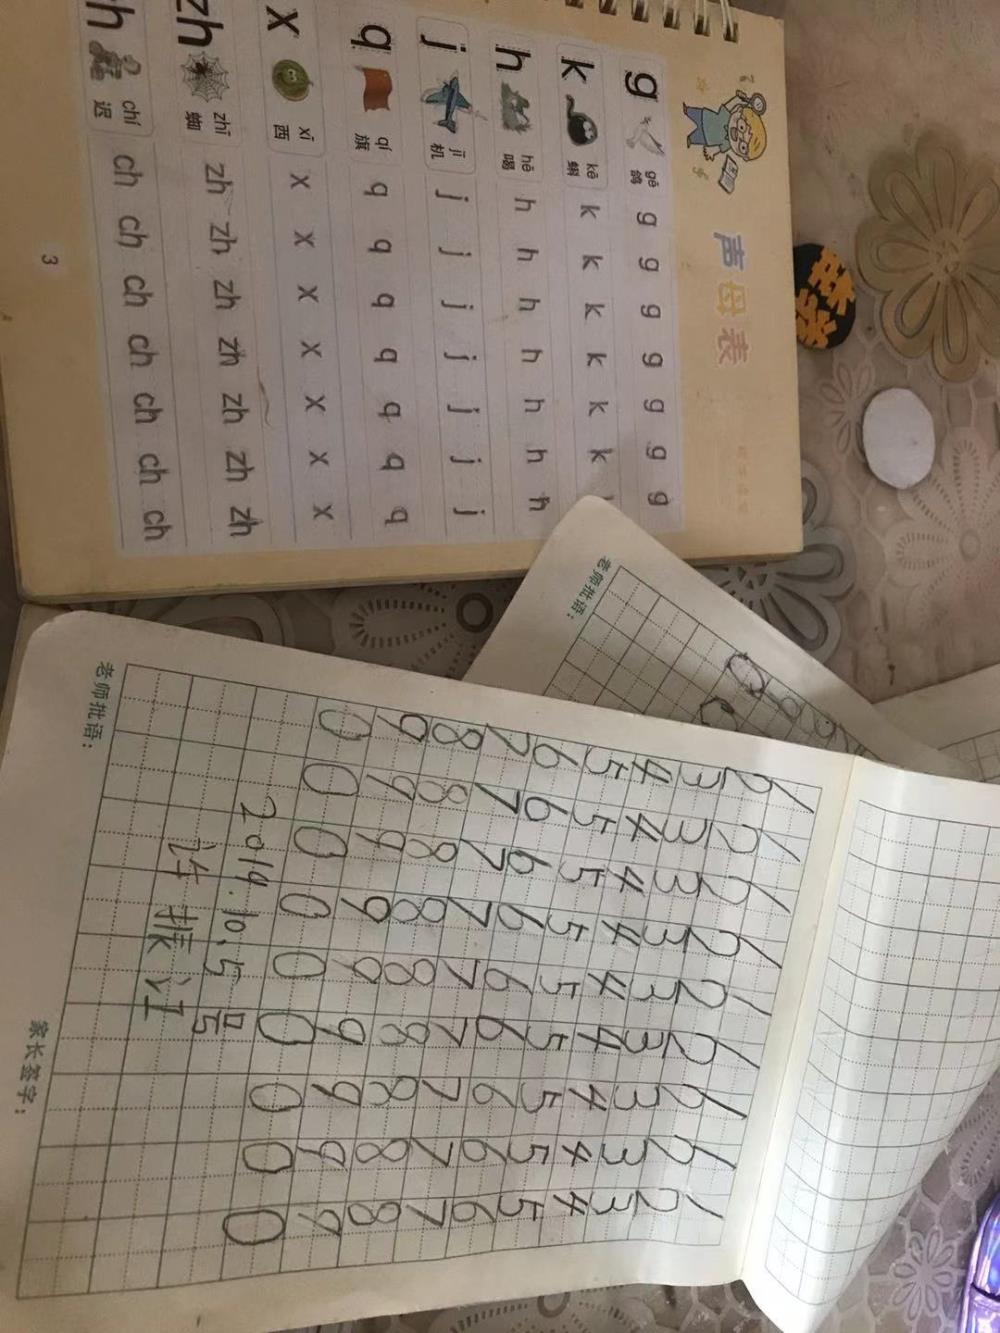 声母表
g gē 鸽 g g g g g g g
k kē 蝌 k k k k k k
h hē 喝 h h h h h h h
j jī 机 j j j j j j j
q qí 旗 q q q q q q q
x xī 西 x x x x x x x
zh zhī 蜘 zh zh zh zh zh zh zh
ch chí 迟 ch ch ch ch ch ch ch
3
老师批语:
1 1 1 1 1 1 1 1 1
2 2 2 2 2 2 2 2 2
3 3 3 3 3 3 3 3 3
4 4 4 4 4 4 4 4 4
5 5 5 5 5 5 5 5 5
6 6 6 6 6 6 6 6 6
7 7 7 7 7 7 7 7 7
8 8 8 8 8 8 8 8 8
9 9 9 9 9 9 9 9 9
0 0 0 0 0 0 0 0 0
2014.10.5号
许振江
老师批语: 家长签字: